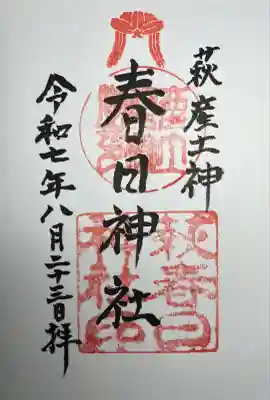 萩産土神
春日神社
令和七年八月二十三日拝
萩春日神社印